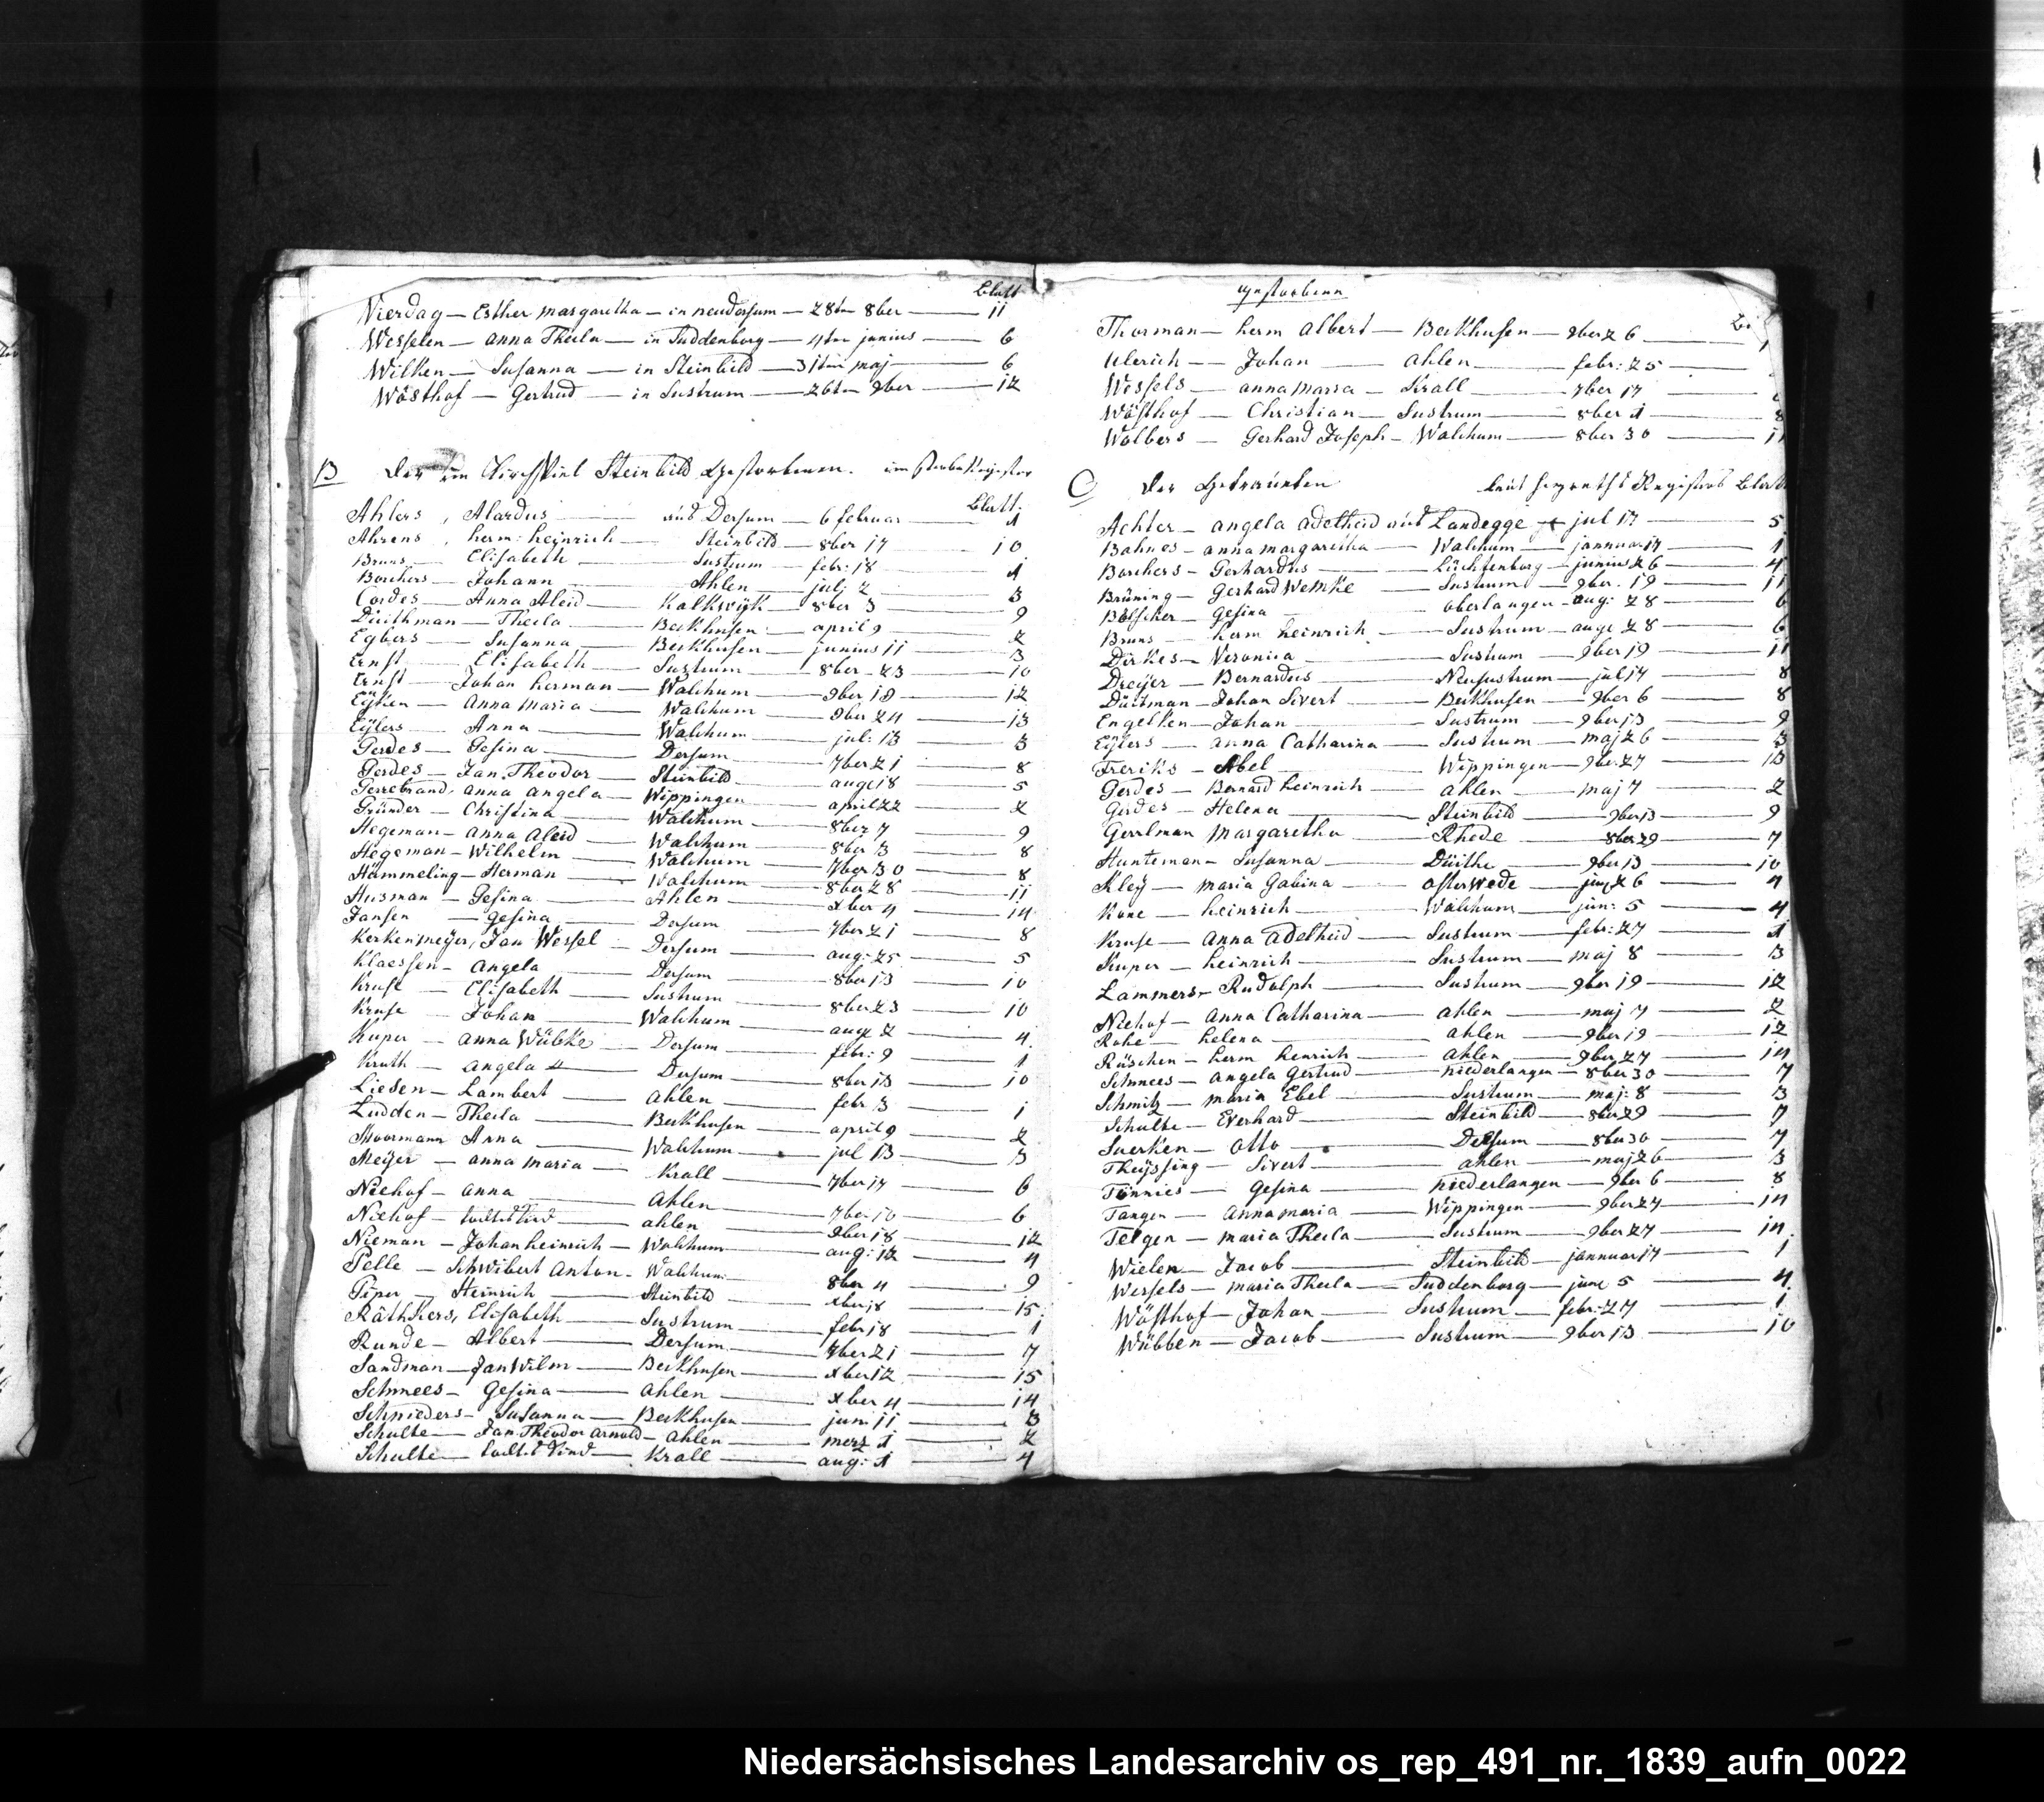 Blatt
Vierdag — Esther margaretha — in neudersum — 28tn 8ber — 11
Wesselen — anna Theela — in Suddenborg — 4tn junius — 6
Wilken — Susanna — in Steinbild — 31tn maj — 6
Wösthof — Gertrud — in Sustrum — 26tn 9ber — 12
B Der im Kirchspiel Steinbild Gestorbenen. im sterbe Register
Blatt.
Ahlers, Alardus — aus Dersum — 6 februar — 1
Ahrens, herm: heinrich — Steinbild — 8ber 17 — 10
Bruns — Elisabeth — Sustrum — febr: 18 — 1
Borchers — Johann — Ahlen — julj 2 — 3
Cordes — Anna Aleid — Kalkwijk — 8ber 3 — 9
Düthman — Theela — Beckhusen — april 9 — 2
Egbers — Susanna — Beckhusen — junius 11 — 3
Ernst — Elisabeth — Sustrum — 8ber 23 — 10
Ernst — Johan herman — Walchum — 9ber 18 — 12
Eijken — Anna Maria — Walchum — 9ber 24 — 13
Eijlers — Anna — Walchum — jul: 13 — 3
Gerdes — Gesina — Dersum — 7ber 21 — 8
Gerdes — Jan Theodor — Steinbild — aug 18 — 5
Gerrebrand, anna angela — Wippingen — april 22 — 2
Gründer — Christina — Walchum — 8ber 7 — 9
Hegeman — Anna Aleid — Walchum — 8ber 3 — 8
Hegeman — Wilhelm — Walchum — 7ber 30 — 8
Hämmeling — Herman — Walchum — 8ber 28 — 11
Husman — Gesina — Ahlen — xber 4 — 14
Jansen — gesina — Dersum — 7ber 21 — 8
Kerkenmeijer, Jan Wessel — Dersum — aug: 25 — 5
Klaessen — angela — Dersum — 8ber 13 — 10
Kruse — Elisabeth — Sustrum — 8ber 23 — 10
Kruse — Johan — Walchum — aug 2 — 4
Kuper — anna Wübke — Dersum — febr: 9 — 1
Kruth — angela — Dersum — 8ber 13 — 10
Lieden — Lambert — Ahlen — febr 3 — 1
Ludden — Theela — Beckhusen — april 9 — 2
Moormann Anna — Walchum — jul 13 — 3
Meijer — anna maria — Krall — 7ber 17 — 6
Niehof — anna — Ahlen — 7ber 10 — 6
Niehof — todtes Kind — ahlen — 9ber 18 — 12
Nieman — Johan heinrich — Walchum — aug: 12 — 4
Pelle — Schwibert Anton — Walchum — 8ber 4 — 9
Piper — Heinrich — Steinbild — xber 18 — 15
Räthkers, Elisabeth — Sustrum — febr 18 — 1
Runde — Albert — Dersum — 7ber 21 — 7
Sandman — Jan Wilm — Beckhusen — xber 12 — 15
Schmees — Gesina — ahlen — xber 4 — 14
Schnieders — Susanna — Beckhusen — jun 11 — 3
Schulte — Jan Theodor arnold — ahlen — merz 1 — 2
Schulte — todtes Kind — Krall — aug: 1 — 4
Gestorbene
Thorman — herm albert — Beckhusen — 9ber 26
Ulerich — Johan — ahlen — febr: 25
Wessels — anna maria — Krall — 7ber 17
Wösthof — Christian — Sustrum — 8ber 1 — 8
Wolbers — Gerhard Joseph — Walchum — 8ber 30 — 11
C Der Getrauten laut heyraths Registers Blatt
Achter — angela adelheid aus Landegge — jul 17 — 5
Bahnes — anna margaretha — Walchum — jannuar 17 — 1
Borchers — Gerhardus — Lüchtenborg — junius 26 — 4
Brüning — Gerhard Wemke — Sustrum — 9ber. 19 — 11
Bölscher — gesina — oberlangen — aug: 28 — 6
Bruns — herm heinrich — Sustrum — aug: 28 — 6
Dirkes — Veronica — Sustrum — 9ber 19 — 11
Dreijer — Bernardus — Neusustrum — jul 17 — 8
Düttman — Johan Sivert — Beckhusen — 9ber 6 — 8
Engelken — Johan — Sustrum — 9ber 13 — 9
Eijlers — anna Catharina — Sustrum — maj 26 — 3
Freriks — Abel — Wippingen — 9ber 27 — 13
Gerdes — Bernard heinrich — ahlen — maj 7 — 2
Gerdes — Helena — Steinbild — 9ber 13 — 9
Geerlman Margaretha — Rhede — 8ber 29 — 7
Hunteman — Susanna — Düithe — 9ber 13 — 10
Kleij — maria Gabina — osterwede — jun 26 — 4
Kone — heinrich — Walchum — jun: 5 — 4
Kruse — anna adelheid — Sustrum — febr: 27 — 1
Kuper — heinrich — Sustrum — maj 8 — 3
Lammers — Rudolph — Sustrum — 9ber 19 — 12
Niehof — anna Catharina — ahlen — maj 7 — 2
Rohe — helena — ahlen — 9ber 19 — 12
Rüschen — herm heinrich — ahlen — 9ber 27 — 14
Schmees — angela gertrud — niederlangen — 8ber 30 — 7
Schmitz — maria Ebel — Sustrum — maj: 8 — 3
Schulte — Everhard — Steinbild — 8ber 29 — 7
Suerken — otto — Dersum — 8ber 30 — 7
Theijssing — Sivert — ahlen — maj 26 — 3
Tönnies — gesina — niederlangen — 9ber 6 — 8
Tangen — anna maria — Wippingen — 9ber 27 — 14
Telgen — maria Theela — Sustrum — 9ber 27 — 14
Wielen — Jacob — Steinbild — jannuar 17 — 1
Wessels — maria Theela — Suddenborg — jun 5 — 4
Wösthof — Johan — Sustrum — febr: 27 — 1
Wübben — Jacob — Sustrum — 9ber 13 — 10
Niedersächsisches Landesarchiv os_rep_491_nr._1839_aufn_0022